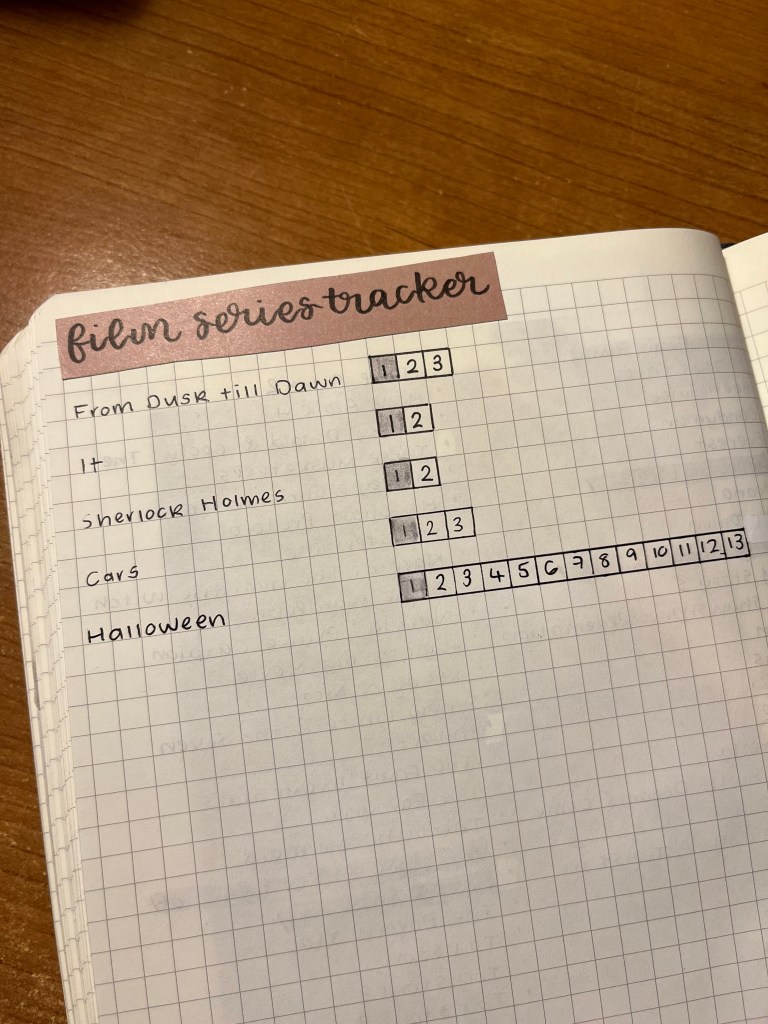 film series tracker
From Dusk till Dawn 1 2 3
It 1 2
Sherlock Holmes 1 2
Cars 1 2 3
Halloween 1 2 3 4 5 6 7 8 9 10 11 12 13